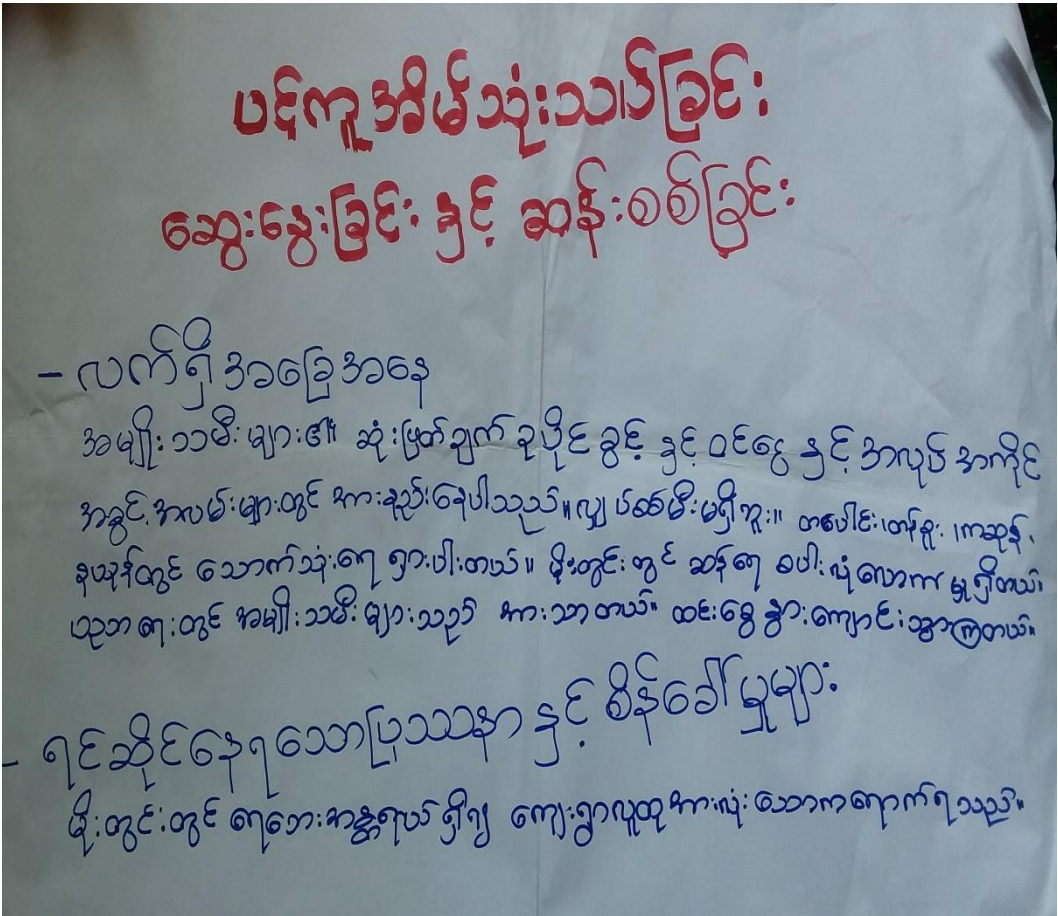 ပင့်ကူအိမ်သုံးသပ်ခြင်း
ဆွေးနွေးခြင်း နှင့် ဆန်းစစ်ခြင်း
- လက်ရှိအခြေအနေ
အမျိုးသမီးများ၏ ဆုံးဖြတ်ချက် ခုပိုင်ခွင့် နှင့် ဝင်ငွေ နှင့် အလုပ်အကိုင်
အခွင့်အလမ်းများတွင် အားနည်းနေပါသည်။ လျှပ်စစ်မီးမရှိဘူး။ တပေါင်း၊ တန်ခူး၊ ကဆုန်၊
နယုန်တွင် သောက်သုံးရေ ရှားပါးတယ်။ မိုးတွင်းတွင် ဆန်ရေ စပါး လုံလောက်မှုရှိတယ်။
ပညာရေးတွင် အမျိုးသမီးများသည် အားသာတယ်။ ထင်းခွေ နွားကျောင်းသွားကြတယ်။
- ရင်ဆိုင်နေရသောပြဿနာ နှင့် စိန်ခေါ်မှုများ
မိုးတွင်းတွင် ရေဘေးအန္တရာယ် ရှိ၍ ကျေးရွာလူထုအားလုံး သောကရောက်ရသည်။